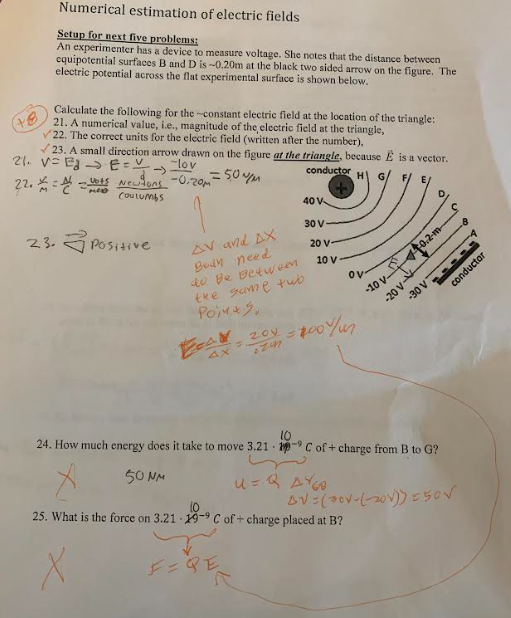 Numerical estimation of electric fields
Setup for next five problems:
An experimenter has a device to measure voltage. She notes that the distance between
equipotential surfaces B and D is ~0.20m at the black two sided arrow on the figure. The
electric potential across the flat experimental surface is shown below.
+8
Calculate the following for the ~constant electric field at the location of the triangle:
21. A numerical value, i.e., magnitude of the electric field at the triangle,
✓22. The correct units for the electric field (written after the number),
✓23. A small direction arrow drawn on the figure at the triangle, because E is a vector.
21. V= Ed → E= V/d → -10V/-0.20m = 50 V/m
22. V/m = N/C = volts/meter Newtons/Coulombs
23. Positive
conductor H G F E D C B A
+
40 V
30 V
20 V
10 V
0 V
-10 V
-20 V
-30 V
~0.2-m
E
conductor
ΔV and ΔX
Both need
to Be Between
the same two
Points.
E = ΔV/ΔX = 20V/.20m = 100 V/m
24. How much energy does it take to move 3.21 · 10⁻⁹ C of + charge from B to G?
10
X 50 NM
U = Q ΔV
ΔV = (30V-(-20V)) = 50V
25. What is the force on 3.21 · 19⁻⁹ C of + charge placed at B?
10
X
F = QE